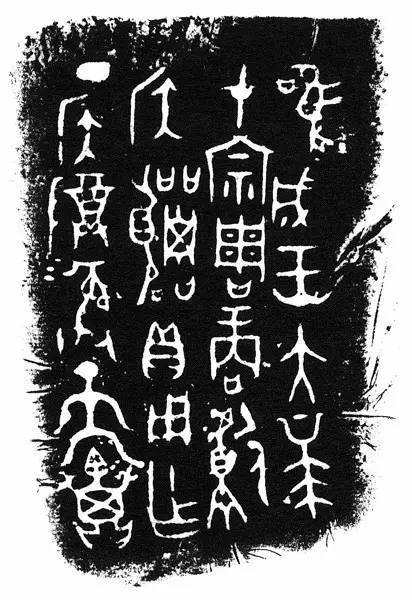 唯成王大𠦪
才宗周商獻
侯貝用乍
丁侯尊彝天黿